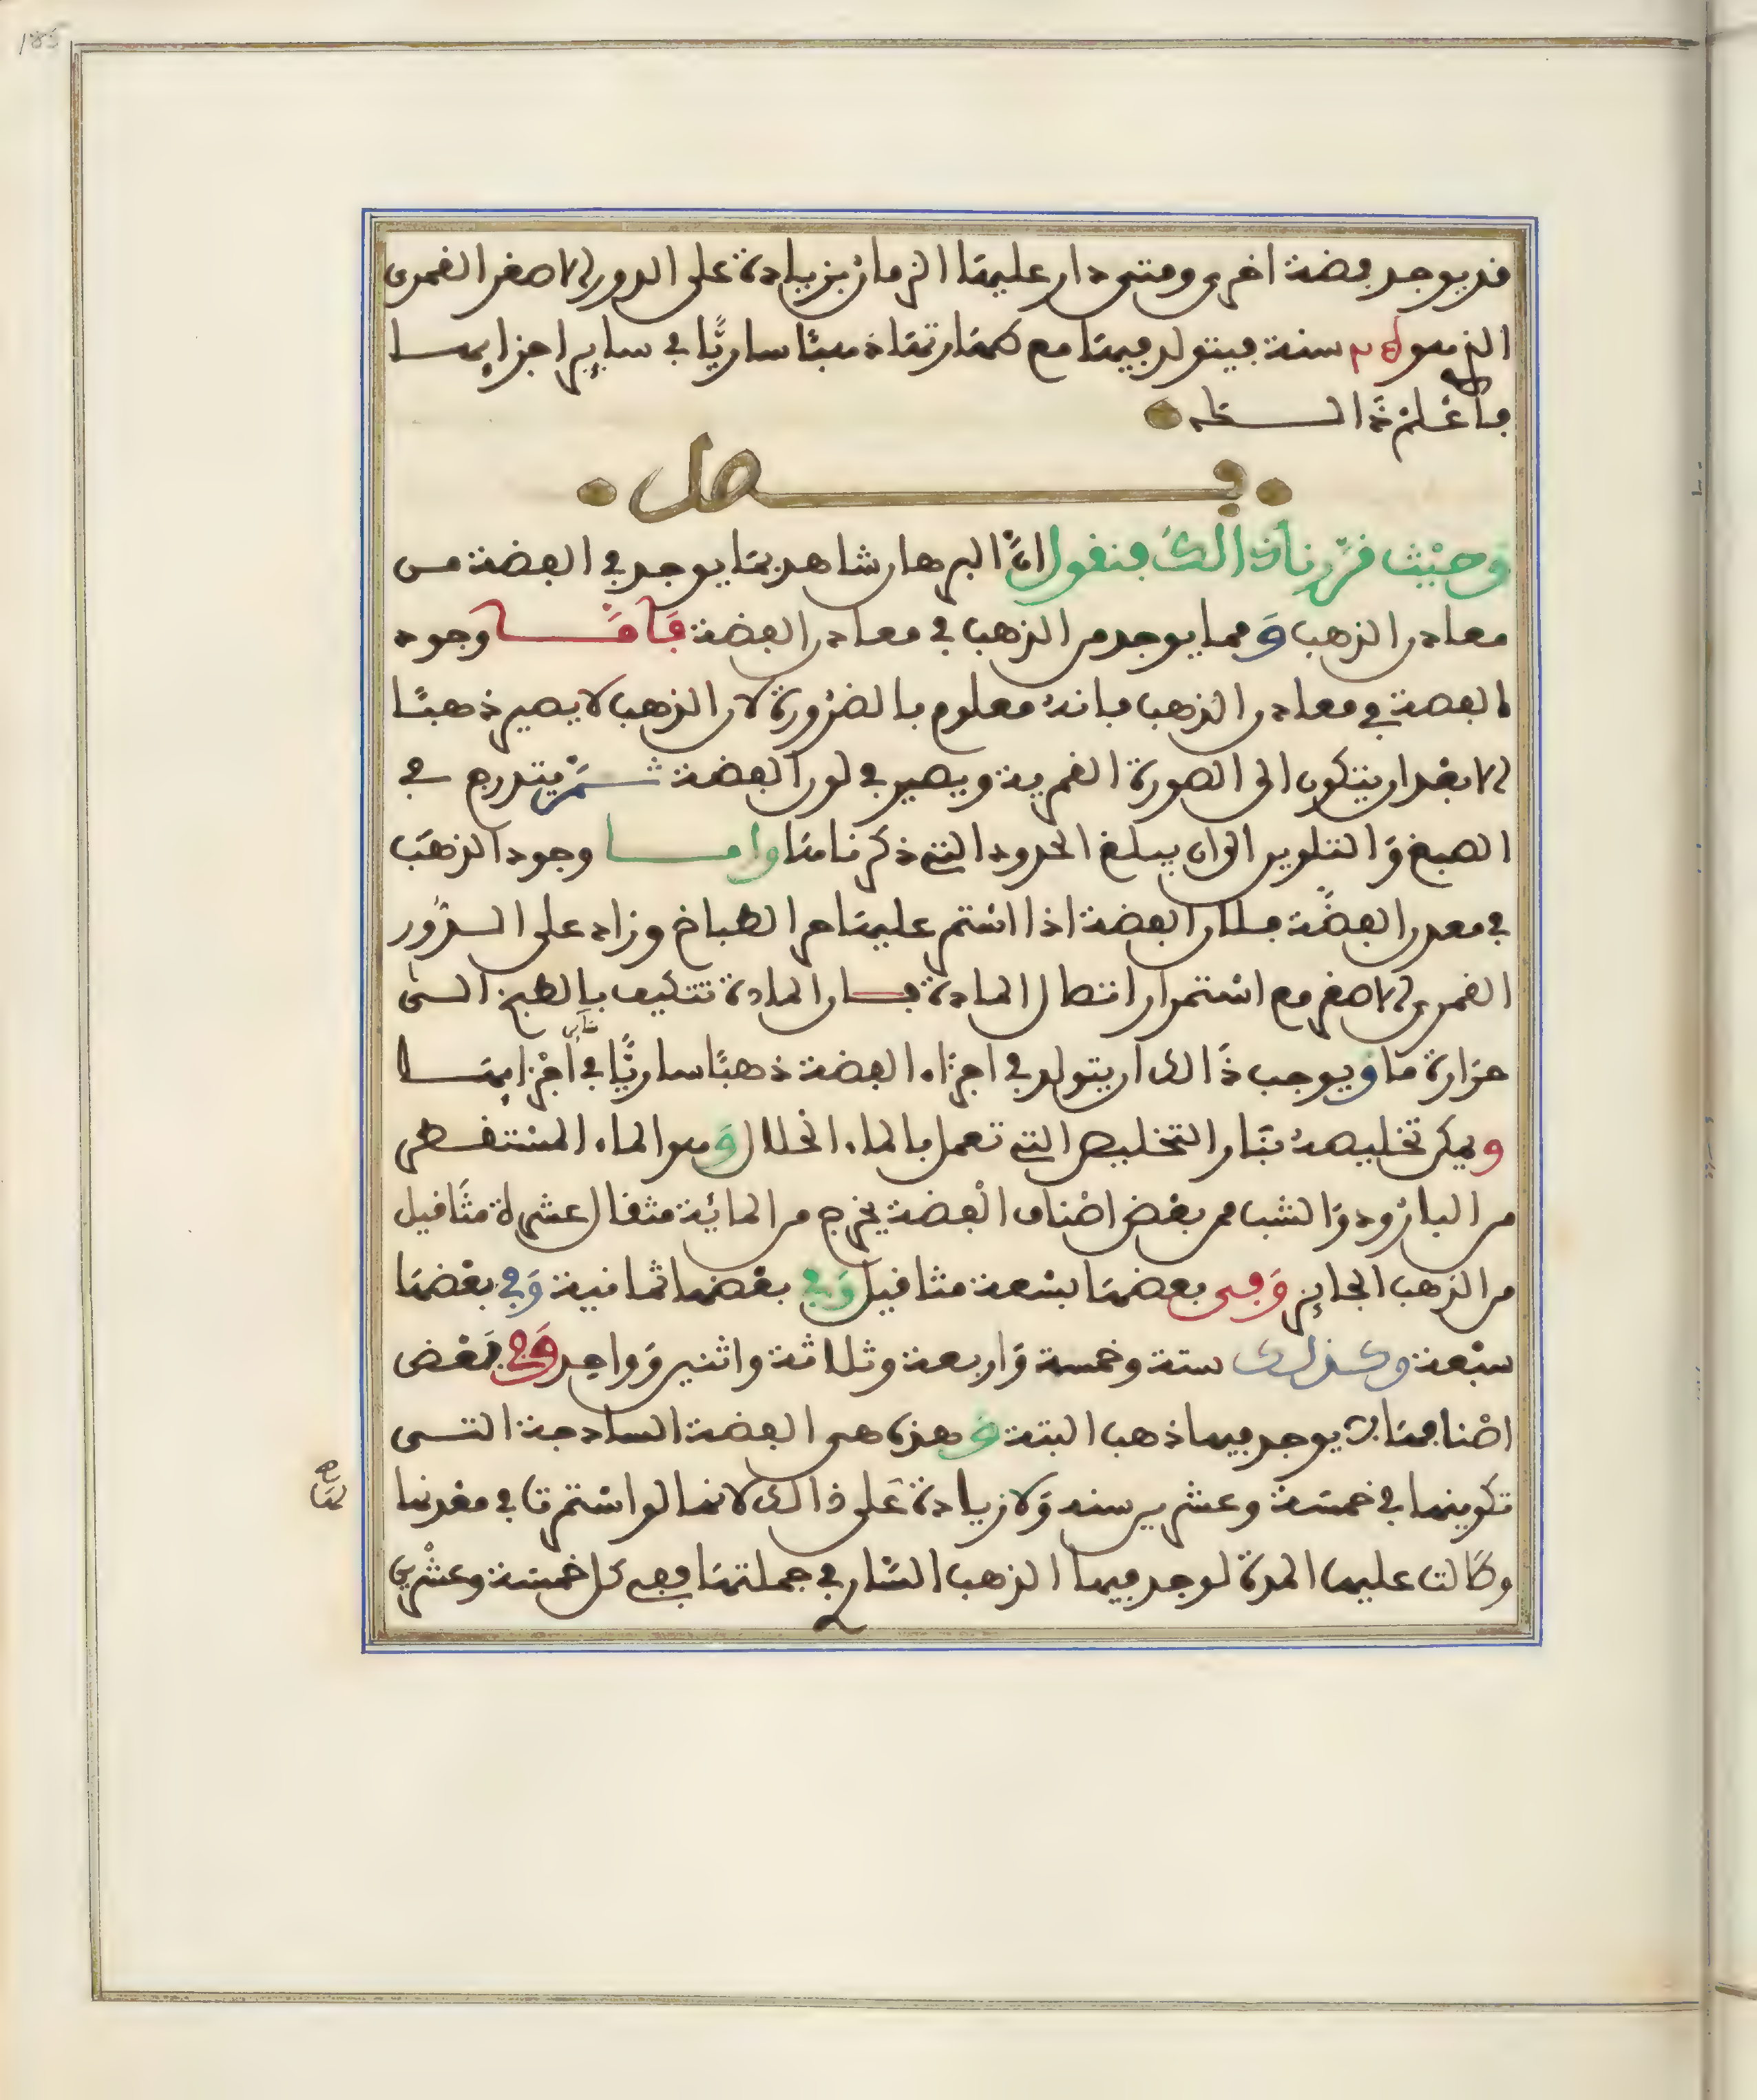 185
قد يوجد فضة اخرى ومتى دار عليها الزمان بزيادة على الدور الاصغر القمرى
الذي هو سنة فيتولد فيها مع طهارتها ذهبًا ساريًا في ساير اجزايها
فاعْلم ذَالك
فصل
وَحيْث قرّرنا ذالكَ فنقول انّ البرهان شاهد بما يوجد في الفضة من
معادن الذهب وَمما يوجد من الذهب في معادن الفضة فَأمَّا وجود
الفضة في معادن الذهب فانهُ معلوم بالضرُورة لان الذهب لا يصير ذهبًا
الا بعْد ان يتكون الى الصورة القمرية ويصير في لون الفضة ثمّ يتدرج في
الصبغ وَالتلوين الى ان يبلغ الحدود التي ذكرناها واما وجود الذهَب
في معدن الفضّة فلان الفضة اذا اسْتمر عليها حر الطباخ وزاد على الدَّوْر
القمري الاصغر مع اسْتمرار اتصال المادة فان المادة تتكيف بالطبخ الى
حرَارة ما ويوجب ذَالك ان يتولد في اجزَاء الفضة ذهبًا ساريًّا في سَاير أجْزايها
ويمكن تخليصهُ بنَار التخليص التي تعمل بالماء الحلال وَهو الماء المسْتقطر
من البارُود وَالشب فمن بعْض اصْناف الْفضة يخرج من المائة مثقال عشرة مثَاقيل
من الذهب الجايز وَفى بعضها بسْعة مثاقيل وَفي بعْضها ثمانية وَفي بعْضها
سبْعة وكذلك ستة وخمسة وَاربعة وثلاثة واثنين وَواحِد وَفي بَعْض
اصْنافها لا يوجد فيها ذهب البتة وَهذه هى الفضة الساذجة التى
تكوينها في خمسَة وعشرين سنه وَلا زيادة عَلى ذالك لانها لو اسْتمرت في معْدنها
وطَالت عليها المدة لوجد فيها الذهب السَّار في جملتها ففى كل خمسَة وعشْرين